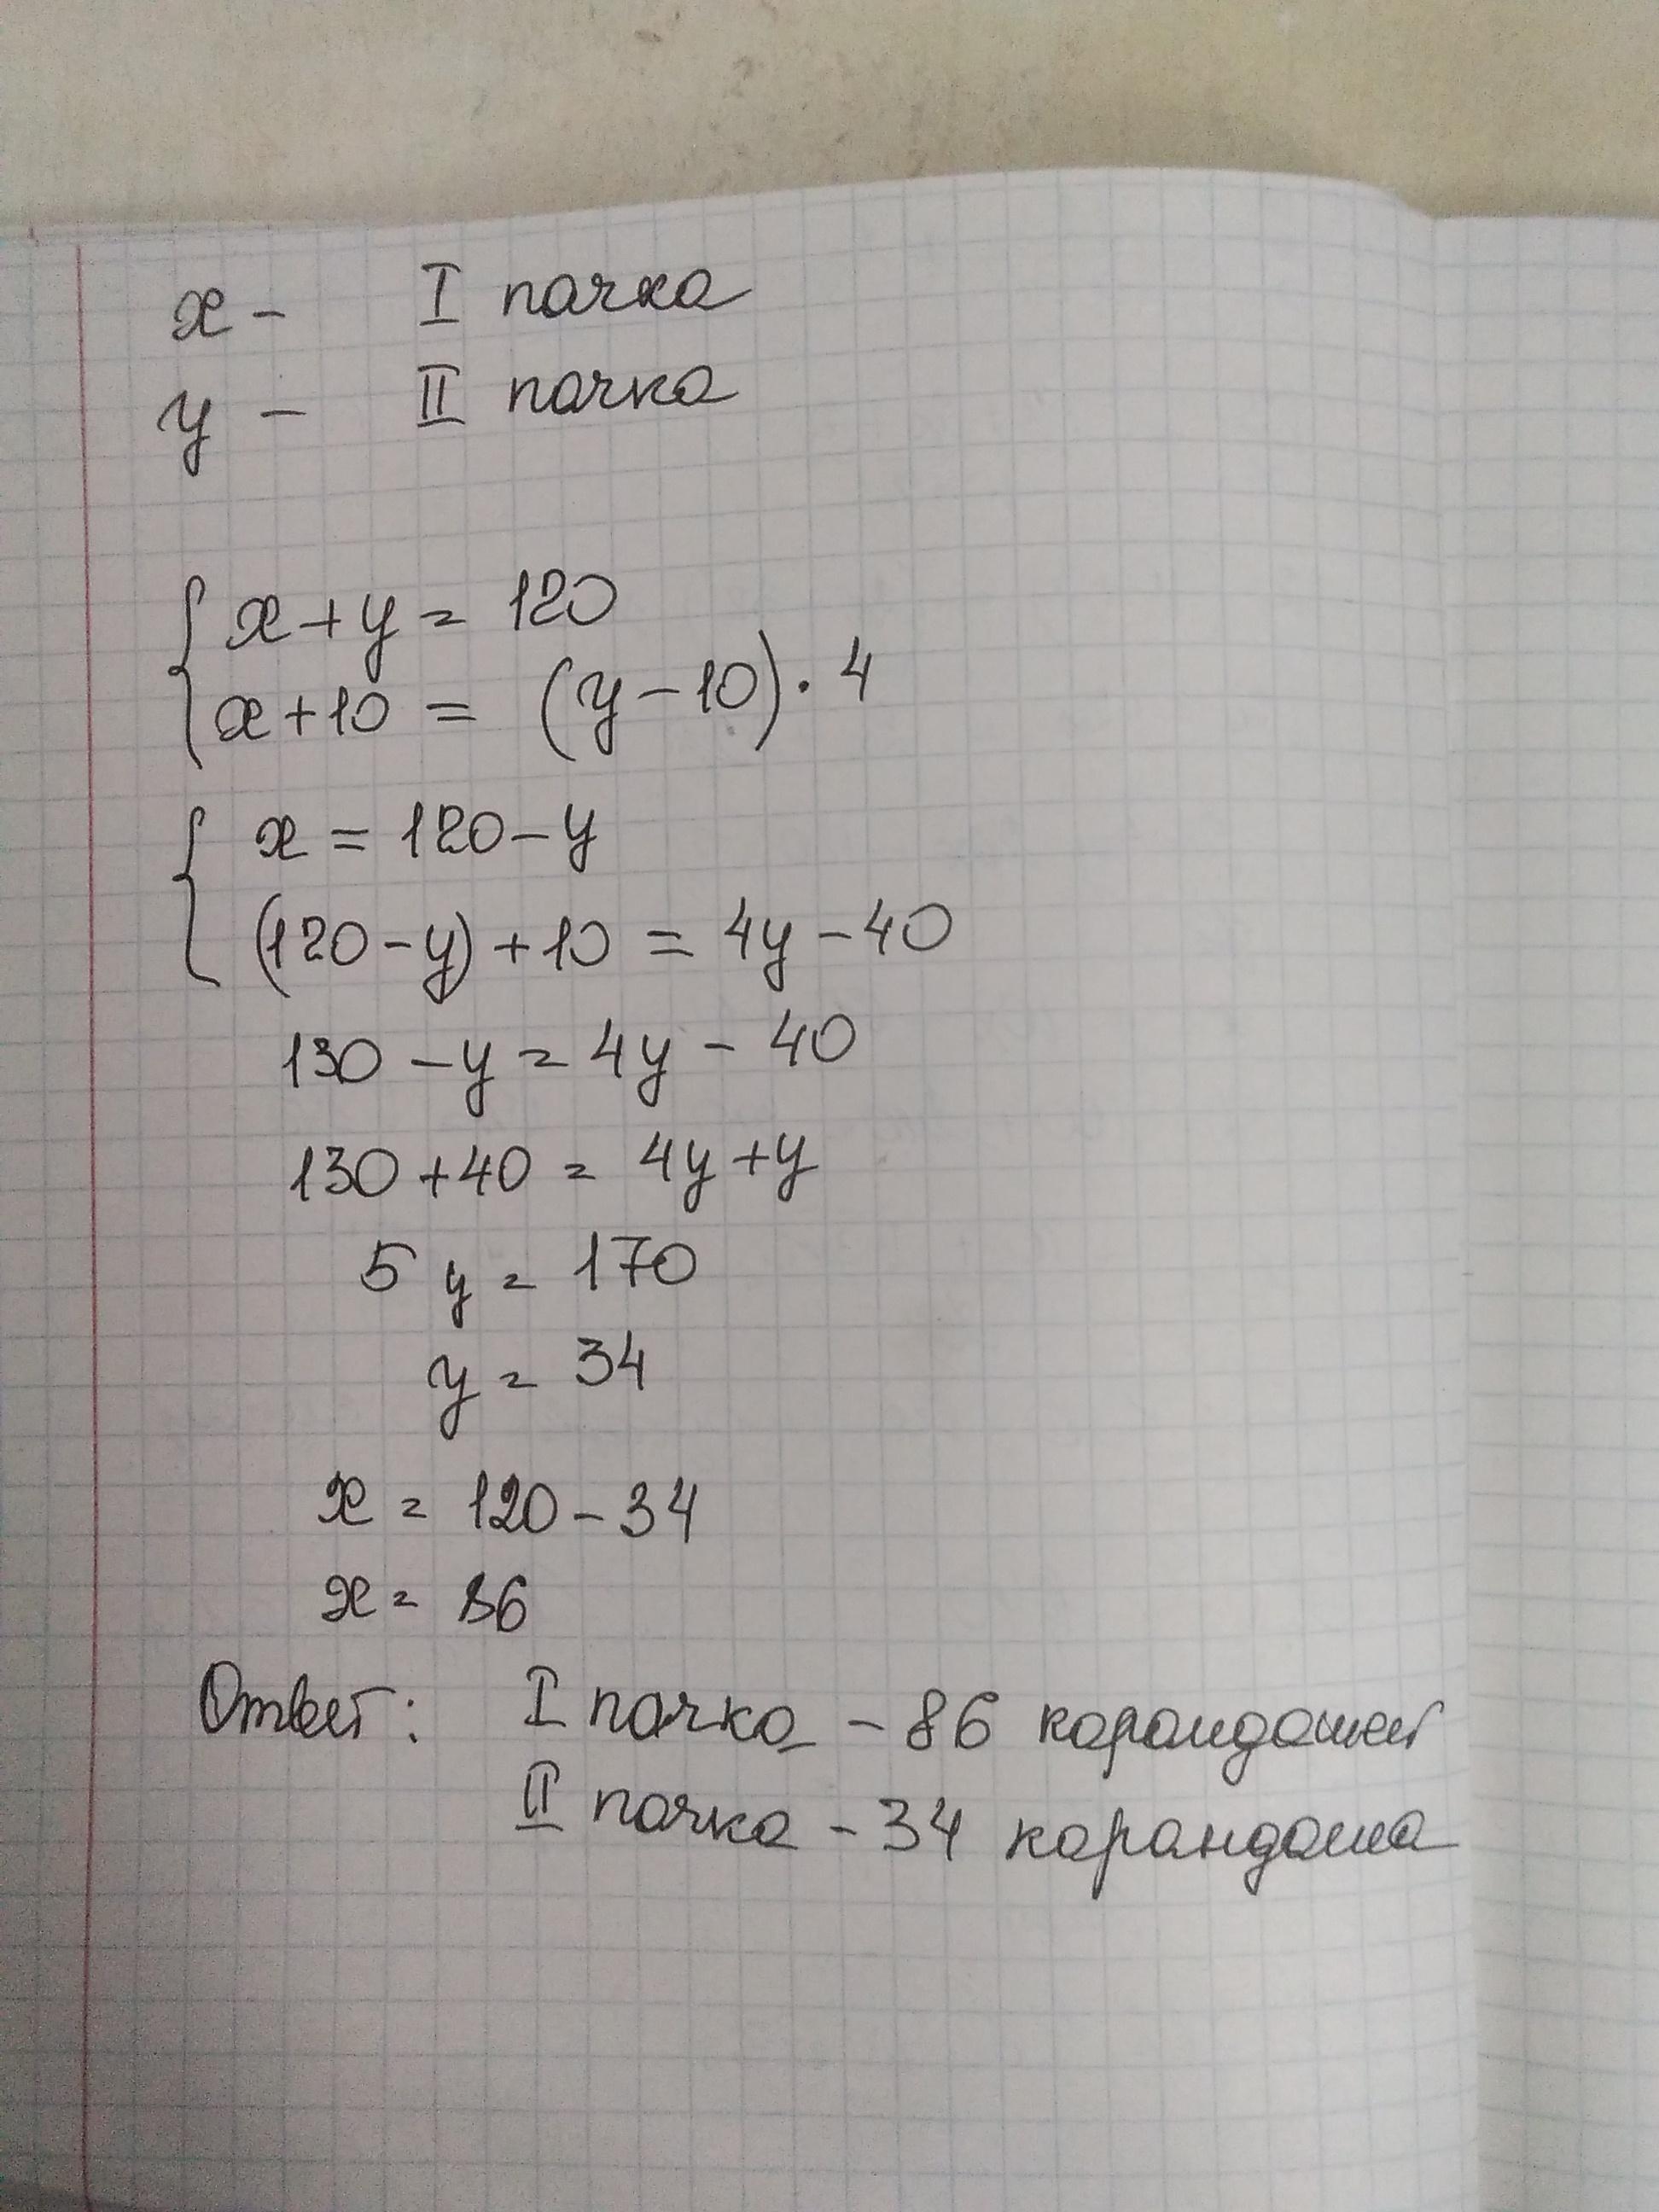 x - I пачка
y - II пачка
x + y = 120
x + 10 = (y - 10) · 4
x = 120 - y
(120 - y) + 10 = 4y - 40
130 - y = 4y - 40
130 + 40 = 4y + y
5y = 170
y = 34
x = 120 - 34
x = 86
Ответ: I пачка - 86 карандашей
II пачка - 34 карандаша